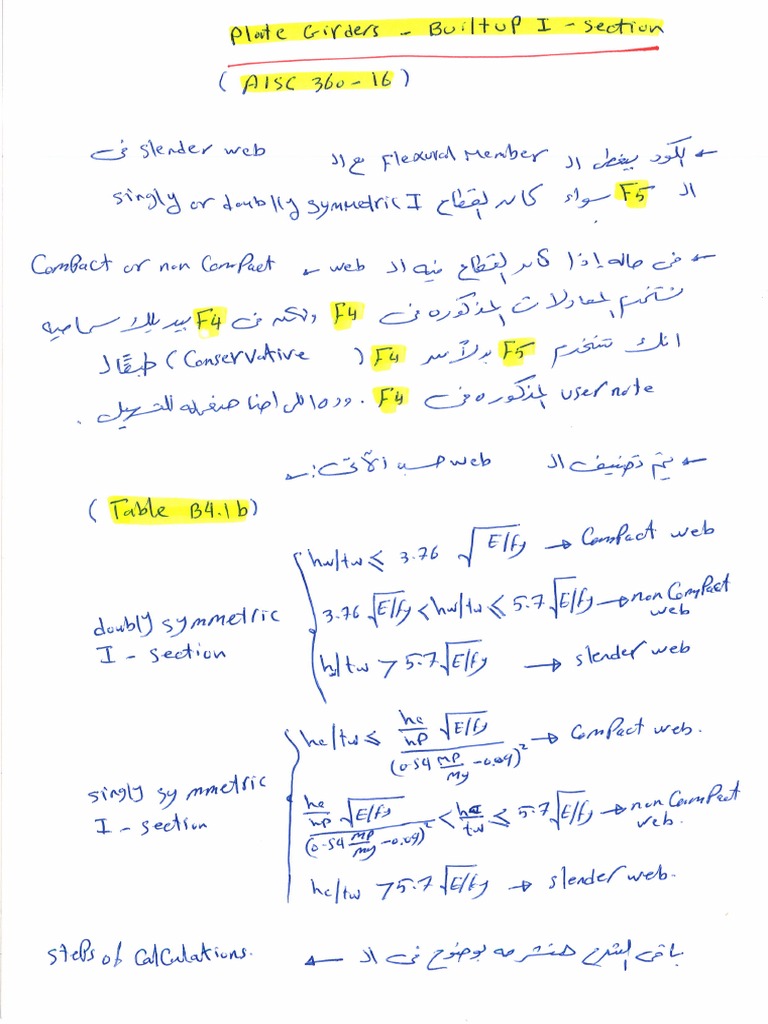 Plate Girders - Built up I - section
( AISC 360-16 )
← الكود بيغطى ال Flexural Member مع ال slender web فى
ال F5 سواء كان القطاع singly or doublly symmetric I
← فى حاله إذا كان القطاع فيه ال web ← Compact or non Compact
نستخدم المعادلات المذكوره فى F4 ولكن فى F4 بيديلك سماحيه
انك تستخدم F5 بدلاً من F4 (Conservative) طبقًا لـ
user note المذكوره فى F4. وده اللى احنا هنعمله للتسهيل .
← يتم تصنيف ال web حسب الآتى :-
( Table B4.1b )
doubly symmetric
I - section
hw/tw ≤ 3.76 √E/fy → Compact web
3.76 √E/fy < hw/tw ≤ 5.7 √E/fy → non Compact web
h/tw > 5.7 √E/fy → slender web
singly symmetric
I - section
hc/tw ≤ hc/hp √E/fy / (0.54 Mp/My - 0.09)² → Compact web.
hc/hp √E/fy / (0.54 Mp/My - 0.09)² < hc/tw ≤ 5.7 √E/fy → non Compact web.
hc/tw > 5.7 √E/fy → slender web.
باقى الشرح هنشرحه بوضوح فى ال ← steps of Calculations.